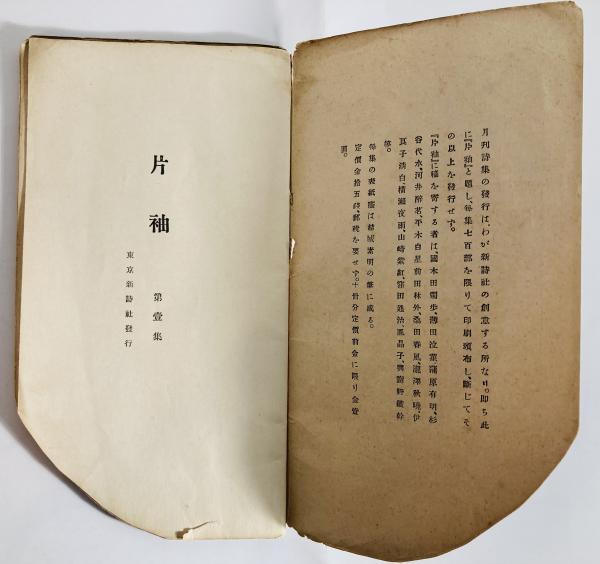 月刊詩集の發行は、わが新詩社の創意する所なり。卽ち此
に『片袖』と題し、每集七百部を限りて印刷頒布し、斷じてそ
の以上を發行せず。
『片袖』に稿を寄する者は、國木田獨步、薄田泣菫、蒲原有明、杉
谷代水、河井醉茗、平木白星、前田林外、桑田春風、瀧澤秋曉、伊
良子淸白、橫瀨夜雨、山崎紫紅、窪田通治、鳳晶子、與謝野鐵幹
等。
每集の表紙畵は結城素明の筆に成る。
定價金拾五錢、郵稅を要せず。十册分定價前金に限り金壹
圓。
片袖
第壹集
東京新詩社發行